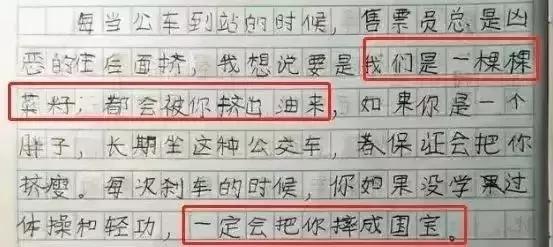 每当公车到站的时候，售票员总是凶
恶的往后面挤，我想说要是我们是一棵棵
菜籽，都会被你挤出油来，如果你是一个
胖子，长期坐这种公交车，券保证会把你
挤瘦。每次刹车的时候，你如果没学果过
体操和轻功，一定会把你摔成国宝。